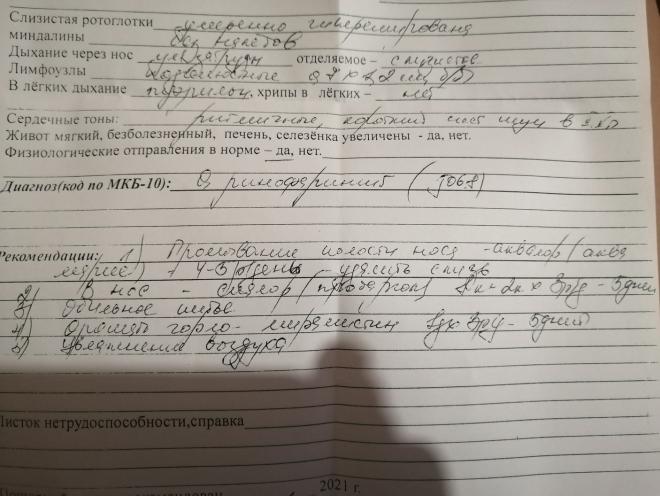 Слизистая ротоглотки умеренно гиперемирована
миндалины без налётов
Дыхание через нос отделяемое – слизистое
Лимфоузлы подчелюстные
В лёгких дыхание хрипы в лёгких – нет
Сердечные тоны: ритмичные, короткий шум в
Живот мягкий, безболезненный, печень, селезёнка увеличены - да, нет.
Физиологические отправления в норме – да, нет.
Диагноз(код по МКБ-10): О ринофарингит (J06.8)
Рекомендации: 1) Промывание полости носа - аквалор (аква
марис) 4-5 р/день - удалить слизь
2) В нос - сиалор (протаргол) 2к-2к х 3р/д - 5 дней
3) Обильное питьё
4) Орошать горло - мирамистин 3р/д - 5 дней
5) Увлажнение воздуха
Листок нетрудоспособности,справка
2021 г.